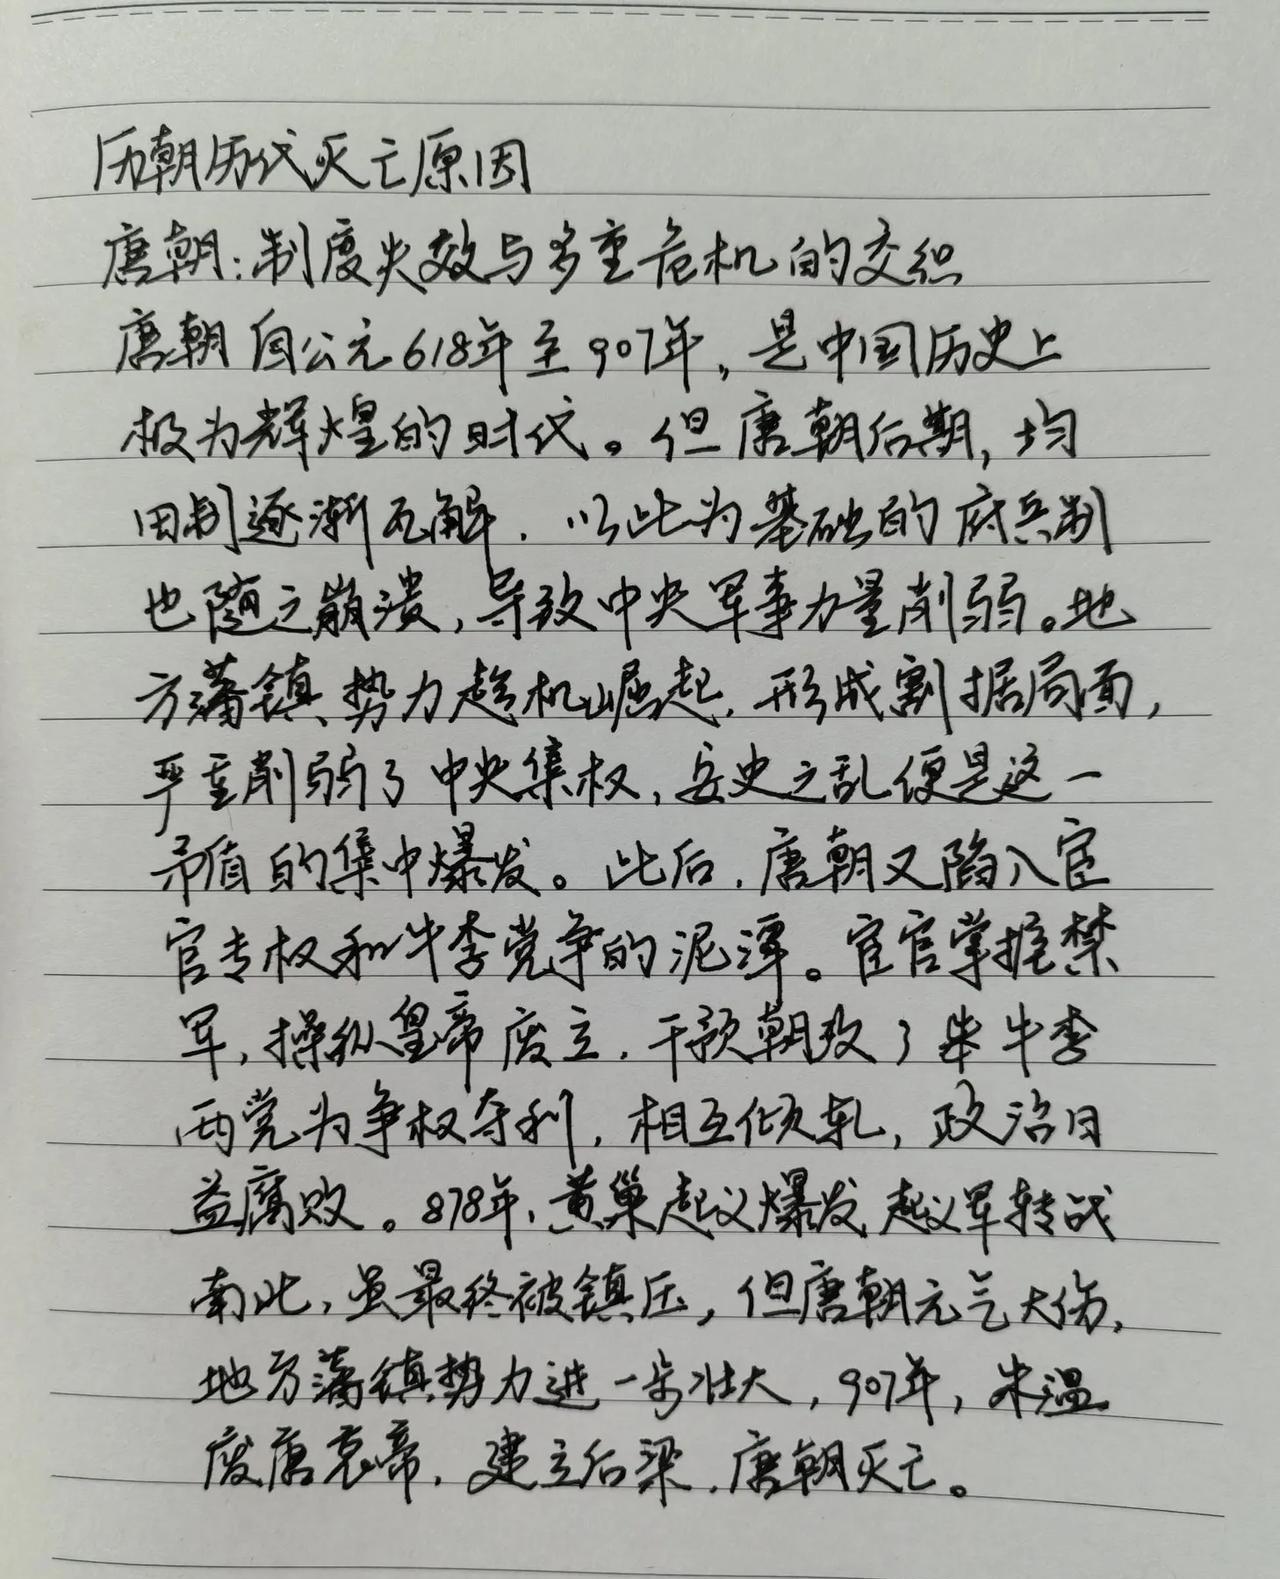 历朝历代灭亡原因
唐朝:制度失效与多重危机的交织
唐朝自公元618年至907年,是中国历史上
极为辉煌的时代。但唐朝后期,均
田制逐渐瓦解,以此为基础的府兵制
也随之崩溃,导致中央军事力量削弱。地
方藩镇势力趁机崛起,形成割据局面,
严重削弱了中央集权,安史之乱便是这一
矛盾的集中爆发。此后,唐朝又陷入宦
官专权和牛李党争的泥潭。宦官掌握禁
军,操纵皇帝废立,干预朝政;牛李
两党为争权夺利,相互倾轧,政治日
益腐败。878年,黄巢起义爆发,起义军转战
南北,虽最终被镇压,但唐朝元气大伤,
地方藩镇势力进一步壮大,907年,朱温
废唐哀帝,建立后梁,唐朝灭亡。